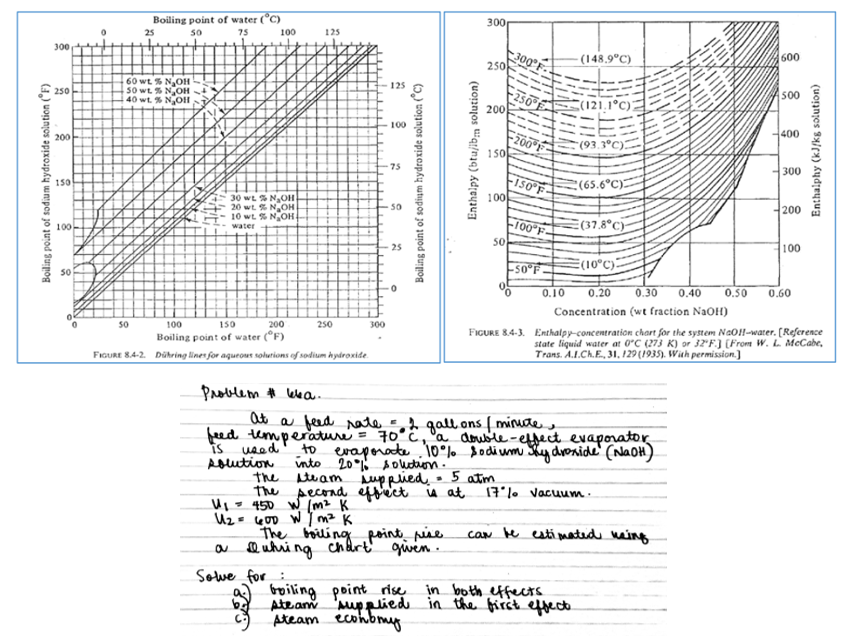 Boiling point of water (°C)
0 25 50 75 100 125
300
250
200
150
100
50
0
Boiling point of sodium hydroxide solution (°F)
60 wt. % NaOH
50 wt. % NaOH
40 wt. % NaOH
30 wt. % NaOH
20 wt. % NaOH
10 wt. % NaOH
water
125
100
75
50
25
0
Boiling point of sodium hydroxide solution (°C)
0 50 100 150 200 250 300
Boiling point of water (°F)
FIGURE 8.4-2. Dühring lines for aqueous solutions of sodium hydroxide.
300
250
200
150
100
50
0
Enthalpy (btu/lbm solution)
300°F (148.9°C)
250°F (121.1°C)
200°F (93.3°C)
150°F (65.6°C)
100°F (37.8°C)
50°F (10°C)
600
500
400
300
200
100
Enthalphy (kJ/kg solution)
0 0.10 0.20 0.30 0.40 0.50 0.60
Concentration (wt fraction NaOH)
FIGURE 8.4-3. Enthalpy-concentration chart for the system NaOH-water. [Reference
state liquid water at 0°C (273 K) or 32°F.] [From W. L. McCabe,
Trans. A.I.Ch.E., 31, 129 (1935). With permission.]
Problem # 66a.
At a feed rate = 2 gallons / minute,
feed temperature = 70°C, a double-effect evaporator
is used to evaporate 10% sodium hydroxide (NaOH)
solution into 20% solution.
the steam supplied = 5 atm
The second effect is at 17% vacuum.
U1 = 450 W/m² K
U2 = 600 W/m² K
The boiling point rise can be estimated using
a Duhring chart given.
Solve for :
a.) boiling point rise in both effects
b.) steam supplied in the first effect
c.) steam economy